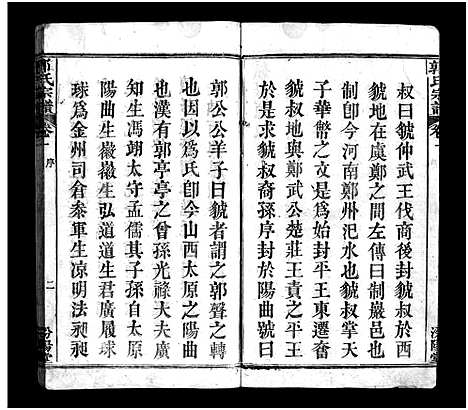 叔曰虢仲武王伐商後封虢叔於西
虢地在虞鄭之間左傳曰制巖邑也
制卽今河南鄭州汜水虢叔掌天
子華幣之文是爲始封平王東遷奪
虢叔地與鄭武公楚莊王責之平王
於是求虢叔裔孫序封於陽曲號曰
郭公公羊子曰虢者謂之郭聲之轉
也因以爲氏卽今山西太原之陽曲
也漢有郭亭亭之曾孫光祿大夫廣
智生馮翊太守孟儒其子孫自太原
陽曲生徽徽生弘道道生君廣履球
球爲金州司倉參軍生凉明法昶昶
郭氏宗譜
卷一
序
二
汾陽堂
郭氏宗譜
卷一
汾陽堂